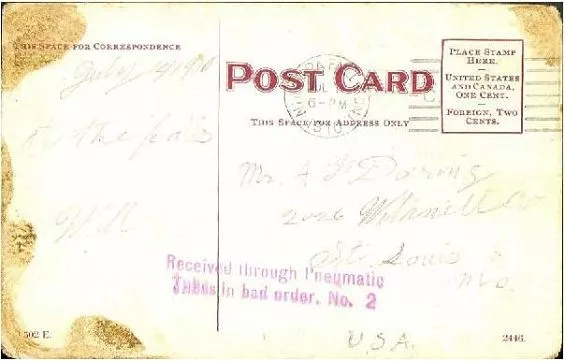 THIS SPACE FOR CORRESPONDENCE
July 4 1910
At the falls
Will
POST CARD
6-PM
THIS SPACE FOR ADDRESS ONLY
PLACE STAMP
HERE.
UNITED STATES
AND CANADA,
ONE CENT.
FOREIGN, TWO
CENTS.
Mr. A
2026
St. Louis
Mo.
U.S.A.
Received through Pneumatic
Tubes in bad order. No. 2
502 E.
2446.